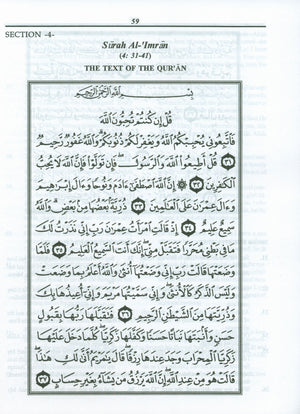 59
SECTION -4-
Sūrah Al-'Imrān
(4: 31-41)
THE TEXT OF THE QUR'ĀN
بِسْمِ اللَّهِ الرَّحْمَٰنِ الرَّحِيمِ
قُلْ إِن كُنتُمْ تُحِبُّونَ اللَّهَ
فَاتَّبِعُونِي يُحْبِبْكُمُ اللَّهُ وَيَغْفِرْ لَكُمْ ذُنُوبَكُمْ وَاللَّهُ غَفُورٌ رَّحِيمٌ
٣١ قُلْ أَطِيعُوا اللَّهَ وَالرَّسُولَ فَإِن تَوَلَّوْا فَإِنَّ اللَّهَ لَا يُحِبُّ
الْكَافِرِينَ ٣٢ إِنَّ اللَّهَ اصْطَفَىٰ ءَادَمَ وَنُوحًا وَءَالَ إِبْرَاهِيمَ
وَءَالَ عِمْرَانَ عَلَى الْعَالَمِينَ ٣٣ ذُرِّيَّةً بَعْضُهَا مِن بَعْضٍ وَاللَّهُ
سَمِيعٌ عَلِيمٌ ٣٤ إِذْ قَالَتِ امْرَأَتُ عِمْرَانَ رَبِّ إِنِّي نَذَرْتُ لَكَ
مَا فِي بَطْنِي مُحَرَّرًا فَتَقَبَّلْ مِنِّي إِنَّكَ أَنتَ السَّمِيعُ الْعَلِيمُ ٣٥ فَلَمَّا
وَضَعَتْهَا قَالَتْ رَبِّ إِنِّي وَضَعْتُهَا أُنثَىٰ وَاللَّهُ أَعْلَمُ بِمَا وَضَعَتْ
وَلَيْسَ الذَّكَرُ كَالْأُنثَىٰ وَإِنِّي سَمَّيْتُهَا مَرْيَمَ وَإِنِّي أُعِيذُهَا بِكَ
وَذُرِّيَّتَهَا مِنَ الشَّيْطَانِ الرَّجِيمِ ٣٦ فَتَقَبَّلَهَا رَبُّهَا بِقَبُولٍ
حَسَنٍ وَأَنبَتَهَا نَبَاتًا حَسَنًا وَكَفَّلَهَا زَكَرِيَّا كُلَّمَا دَخَلَ عَلَيْهَا
زَكَرِيَّا الْمِحْرَابَ وَجَدَ عِندَهَا رِزْقًا قَالَ يَا مَرْيَمُ أَنَّىٰ لَكِ هَٰذَا
قَالَتْ هُوَ مِنْ عِندِ اللَّهِ إِنَّ اللَّهَ يَرْزُقُ مَن يَشَاءُ بِغَيْرِ حِسَابٍ ٣٧